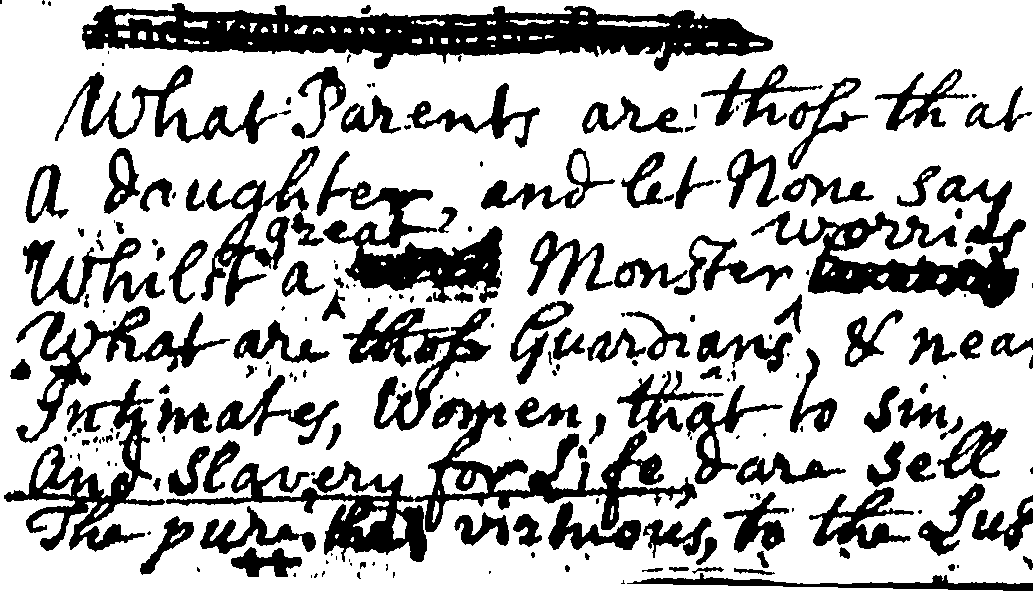 What Parents are those that
A daughter, and let None say
great worries
Whilst a Monster
What are those Guardians, & near
Intimates, Women, that to sin,
And Slavery for Life, dare sell
The pure, the virtuous, to the Lus